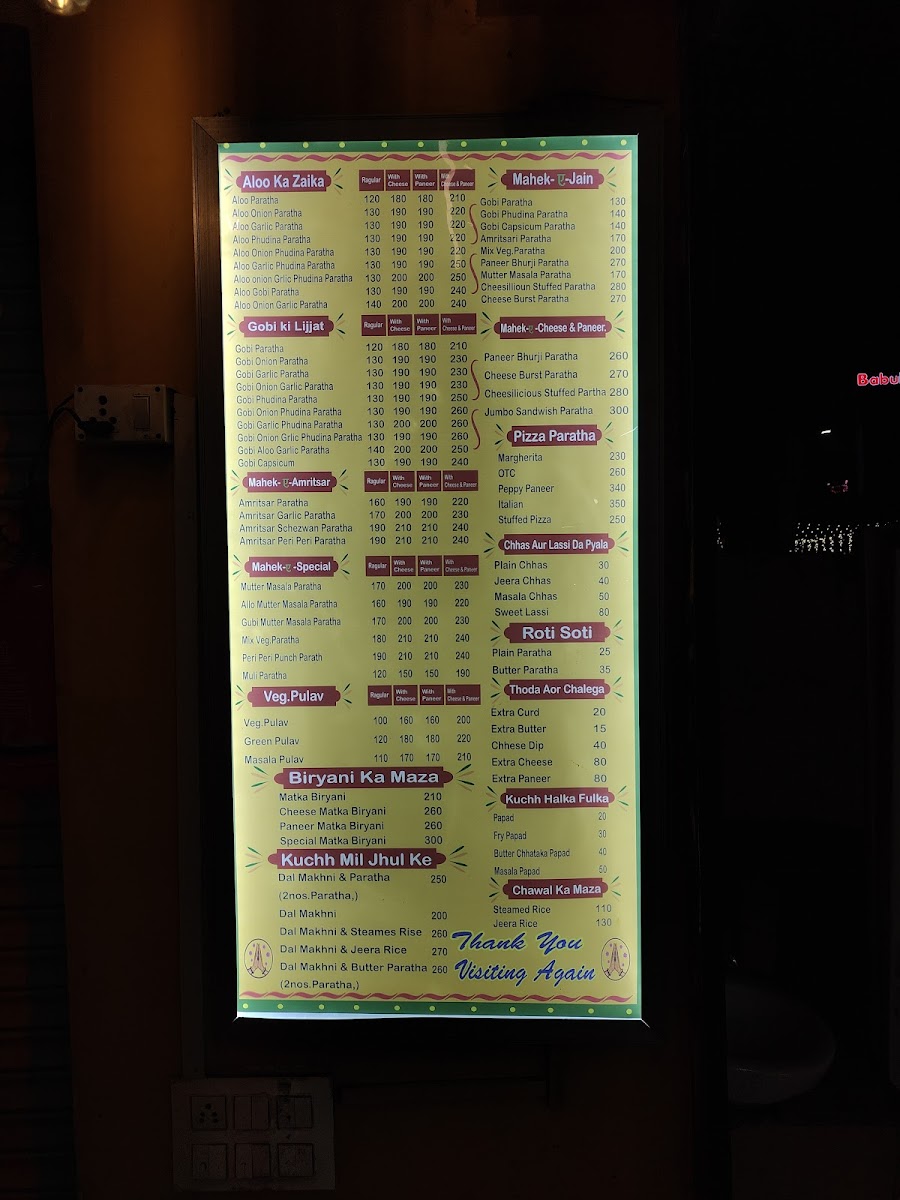 Aloo Ka Zaika Ragular With Cheese With Paneer With Cheese & Paneer
Aloo Paratha 120 180 180 210
Aloo Onion Paratha 130 190 190 220
Aloo Garlic Paratha 130 190 190 220
Aloo Phudina Paratha 130 190 190 220
Aloo Onion Phudina Paratha 130 190 190 220
Aloo Garlic Phudina Paratha 130 190 190 250
Aloo onion Grlic Phudina Paratha 130 200 200 250
Aloo Gobi Paratha 130 190 190 240
Aloo Onion Garlic Paratha 140 200 200 240
Gobi ki Lijjat Ragular With Cheese With Paneer With Cheese & Paneer
Gobi Paratha 120 180 180 210
Gobi Onion Paratha 130 190 190 230
Gobi Garlic Paratha 130 190 190 230
Gobi Onion Garlic Paratha 130 190 190 230
Gobi Phudina Paratha 130 190 190 250
Gobi Onion Phudina Paratha 130 190 190 260
Gobi Garlic Phudina Paratha 130 200 200 260
Gobi Onion Grlic Phudina Paratha 130 190 190 260
Gobi Aloo Garlic Paratha 140 200 200 250
Gobi Capsicum 130 190 190 240
Mahek-ए-Amritsar Ragular With Cheese With Paneer With Cheese & Paneer
Amritsar Paratha 160 190 190 220
Amritsar Garlic Paratha 170 200 200 230
Amritsar Schezwan Paratha 190 210 210 240
Amritsar Peri Peri Paratha 190 210 210 240
Mahek-ए-Special Ragular With Cheese With Paneer With Cheese & Paneer
Mutter Masala Paratha 170 200 200 230
Allo Mutter Masala Paratha 160 190 190 220
Gubi Mutter Masala Paratha 170 200 200 230
Mix Veg.Paratha 180 210 210 240
Peri Peri Punch Parath 190 210 210 240
Muli Paratha 120 150 150 190
Veg.Pulav Ragular With Cheese With Paneer With Cheese & Paneer
Veg.Pulav 100 160 160 200
Green Pulav 120 180 180 220
Masala Pulav 110 170 170 210
Biryani Ka Maza
Matka Biryani 210
Cheese Matka Biryani 260
Paneer Matka Biryani 260
Special Matka Biryani 300
Kuchh Mil Jhul Ke
Dal Makhni & Paratha 250
(2nos.Paratha,)
Dal Makhni 200
Dal Makhni & Steames Rise 260
Dal Makhni & Jeera Rice 270
Dal Makhni & Butter Paratha 260
(2nos.Paratha,)
Mahek-ए-Jain
Gobi Paratha 130
Gobi Phudina Paratha 140
Gobi Capsicum Paratha 140
Amritsari Paratha 170
Mix Veg.Paratha 200
Paneer Bhurji Paratha 270
Mutter Masala Paratha 170
Cheesillioun Stuffed Paratha 280
Cheese Burst Paratha 270
Mahek-ए-Cheese & Paneer.
Paneer Bhurji Paratha 260
Cheese Burst Paratha 270
Cheesilicious Stuffed Partha 280
Jumbo Sandwish Paratha 300
Pizza Paratha
Margherita 230
OTC 260
Peppy Paneer 340
Italian 350
Stuffed Pizza 250
Chhas Aur Lassi Da Pyala
Plain Chhas 30
Jeera Chhas 40
Masala Chhas 50
Sweet Lassi 80
Roti Soti
Plain Paratha 25
Butter Paratha 35
Thoda Aor Chalega
Extra Curd 20
Extra Butter 15
Chhese Dip 40
Extra Cheese 80
Extra Paneer 80
Kuchh Halka Fulka
Papad 20
Fry Papad 30
Butter Chhataka Papad 40
Masala Papad 50
Chawal Ka Maza
Steamed Rice 110
Jeera Rice 130
Thank You
Visiting Again